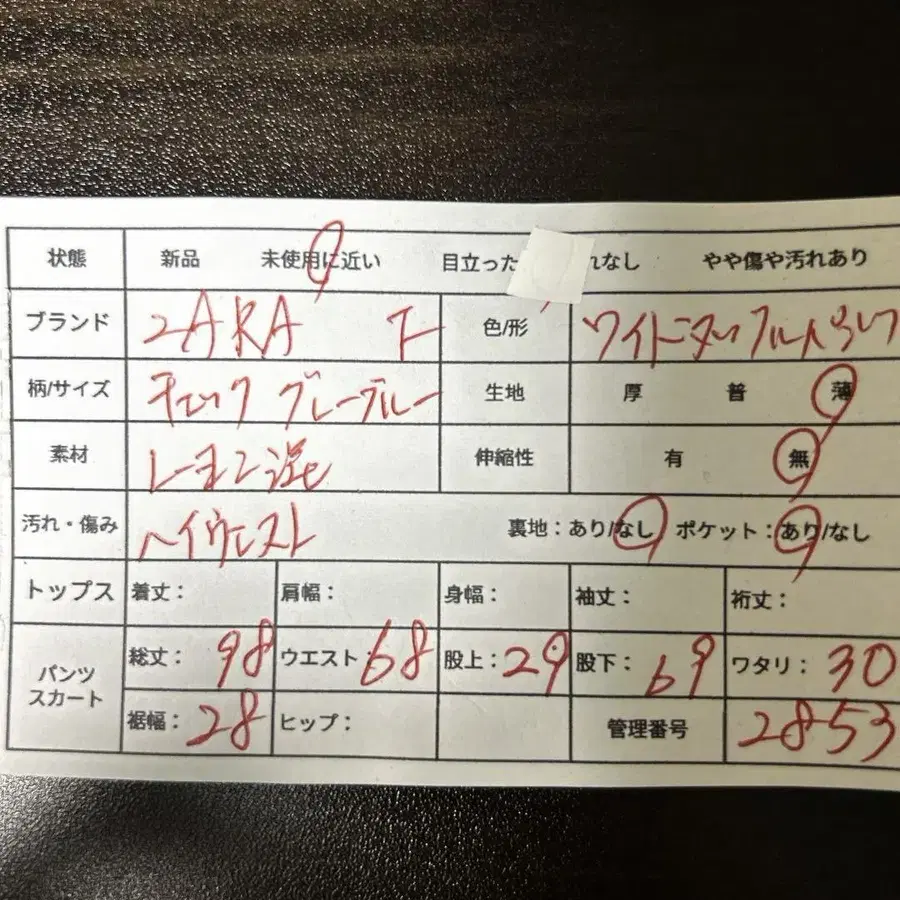 状態 新品 未使用に近い 目立った れなし やや傷や汚れあり
ブランド ZARA 下 色/形 ワイド
柄/サイズ チェック グレーブルー 生地 厚 普 薄
素材 レーヨン混 伸縮性 有 無
汚れ・傷み ハイウエスト 裏地:あり/なし ポケット:あり/なし
トップス 着丈: 肩幅: 身幅: 袖丈: 裄丈:
パンツ スカート 総丈: 98 ウエスト: 68 股上: 29 股下: 69 ワタリ: 30
裾幅: 28 ヒップ: 管理番号 2853